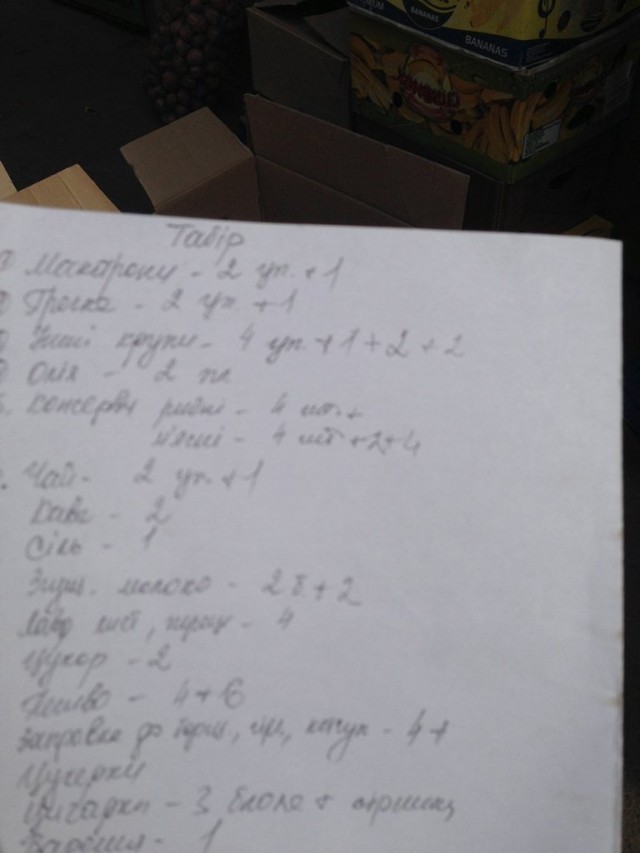 BANANAS
BANANAS
Табір
Макарони - 2 уп. + 1
Гречка - 2 уп. + 1
Інші крупи - 4 уп. + 1 + 2 + 2
Олія - 2 пл
Консерви рибні - 4 шт. +
м'ясні - 4 шт + 2 + 4
Чай - 2 уп. + 1
Кава - 2
Сіль - 1
Згущ. молоко - 2 б + 2
Лавр лист, перец - 4
Цукор - 2
Печиво - 4 + 6
Заправка до борщ., гірч., кетчуп - 4 +
Цукерки
Цигарки - 3 блока + сірники
Варення - 1